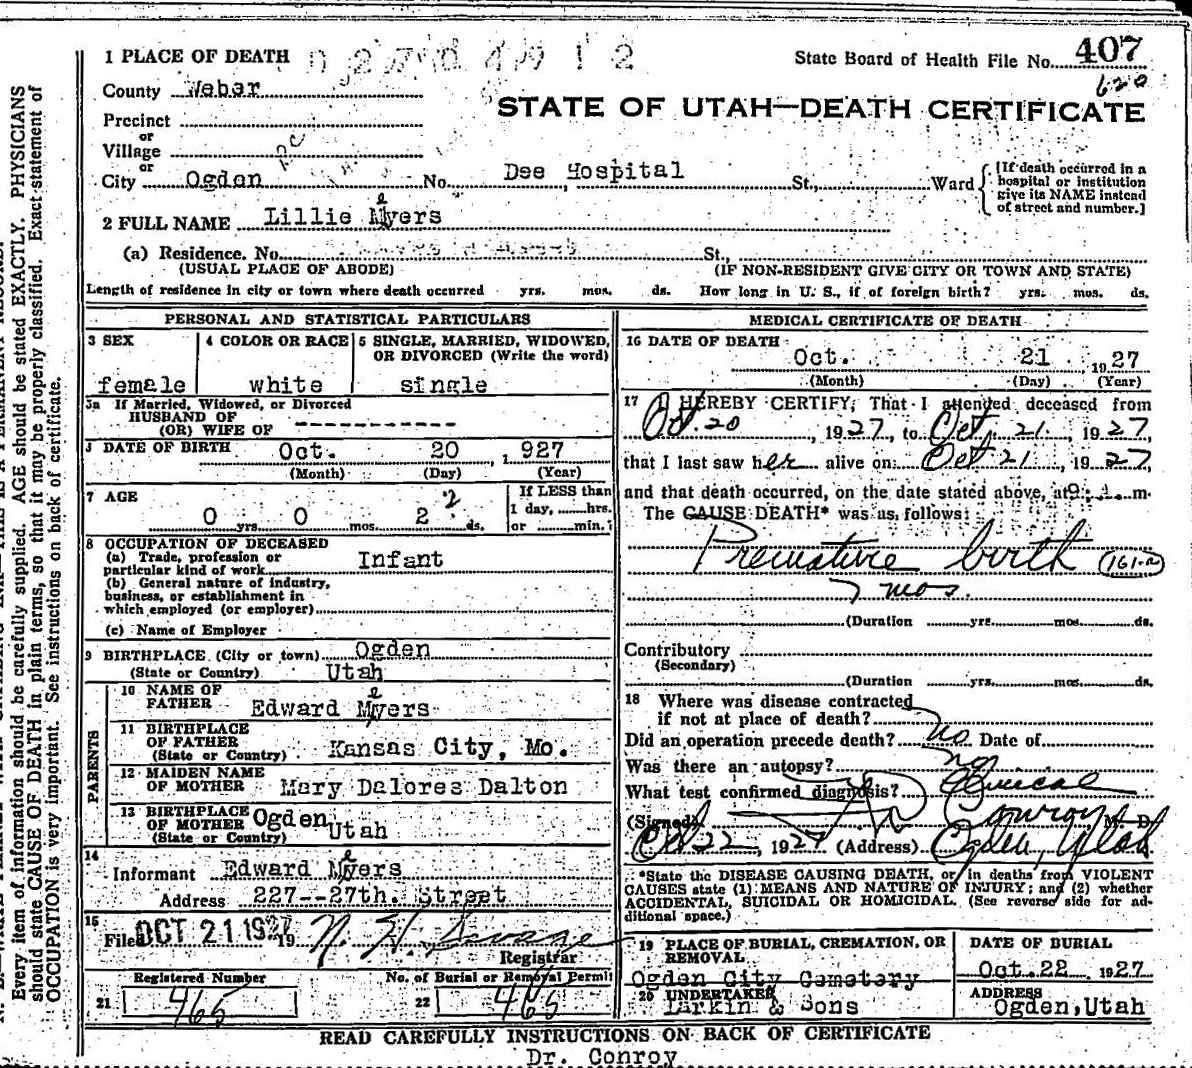 1 PLACE OF DEATH
State Board of Health File No. 407
620
County Weber
STATE OF UTAH—DEATH CERTIFICATE
Precinct
or
Village
or
City Ogden No. Dee Hospital St., Ward
[If death occurred in a
hospital or institution
give its NAME instead
of street and number.]
2 FULL NAME Lillie Myers
e
(a) Residence. No. St.,
(USUAL PLACE OF ABODE) (IF NON-RESIDENT GIVE CITY OR TOWN AND STATE)
Length of residence in city or town where death occurred yrs. mos. ds. How long in U. S., if of foreign birth? yrs. mos. ds.
PERSONAL AND STATISTICAL PARTICULARS
3 SEX
female
4 COLOR OR RACE
white
5 SINGLE, MARRIED, WIDOWED,
OR DIVORCED (Write the word)
single
5a If Married, Widowed, or Divorced
HUSBAND OF
(OR) WIFE OF ------------
DATE OF BIRTH Oct. 20 , 1927
(Month) (Day) (Year)
7 AGE
0 yrs. 0 mos. 2 ds.
If LESS than
1 day, hrs.
or min.
8 OCCUPATION OF DECEASED
(a) Trade, profession or
particular kind of work Infant
(b) General nature of industry,
business, or establishment in
which employed (or employer)
(c) Name of Employer
9 BIRTHPLACE (City or town) Ogden
(State or Country) Utah
PARENTS
10 NAME OF
FATHER Edward Myers
e
11 BIRTHPLACE
OF FATHER
(State or Country) Kansas City, Mo.
12 MAIDEN NAME
OF MOTHER Mary Dalores Dalton
13 BIRTHPLACE
OF MOTHER Ogden
(State or Country) Utah
14
Informant Edward Myers
e
Address 227--27th. Street
15
Filed OCT 21 1927 19 N. H. Savage
Registrar
Registered Number
21 465
No. of Burial or Removal Permit
22 465
MEDICAL CERTIFICATE OF DEATH
16 DATE OF DEATH
Oct. 21 1927
(Month) (Day) (Year)
17 I HEREBY CERTIFY, That I attended deceased from
Oct. 20, 1927, to Oct. 21, 1927,
that I last saw her alive on Oct 21, 1927
and that death occurred, on the date stated above, at m.
The CAUSE DEATH* was as follows:
Premature birth (161-a)
7 mos.
(Duration yrs. mos. ds.
Contributory
(Secondary)
(Duration yrs. mos. ds.
18 Where was disease contracted
if not at place of death?
Did an operation precede death? no Date of
Was there an autopsy? no
What test confirmed diagnosis? Clinical
(Signed) Conroy M. D.
Oct 22, 1927 (Address) Ogden, Utah
*State the DISEASE CAUSING DEATH, or in deaths from VIOLENT
CAUSES state (1) MEANS AND NATURE OF INJURY; and (2) whether
ACCIDENTAL, SUICIDAL OR HOMICIDAL. (See reverse side for ad-
ditional space.)
19 PLACE OF BURIAL, CREMATION, OR
REMOVAL
Ogden City Cemetery
DATE OF BURIAL
Oct.22 1927
20 UNDERTAKER
Larkin & Sons
ADDRESS
Ogden,Utah
READ CAREFULLY INSTRUCTIONS ON BACK OF CERTIFICATE
Dr. Conroy
Every item of information should be carefully supplied. AGE should be stated EXACTLY. PHYSICIANS
should state CAUSE OF DEATH in plain terms, so that it may be properly classified. Exact statement of
OCCUPATION is very important. See instructions on back of certificate.